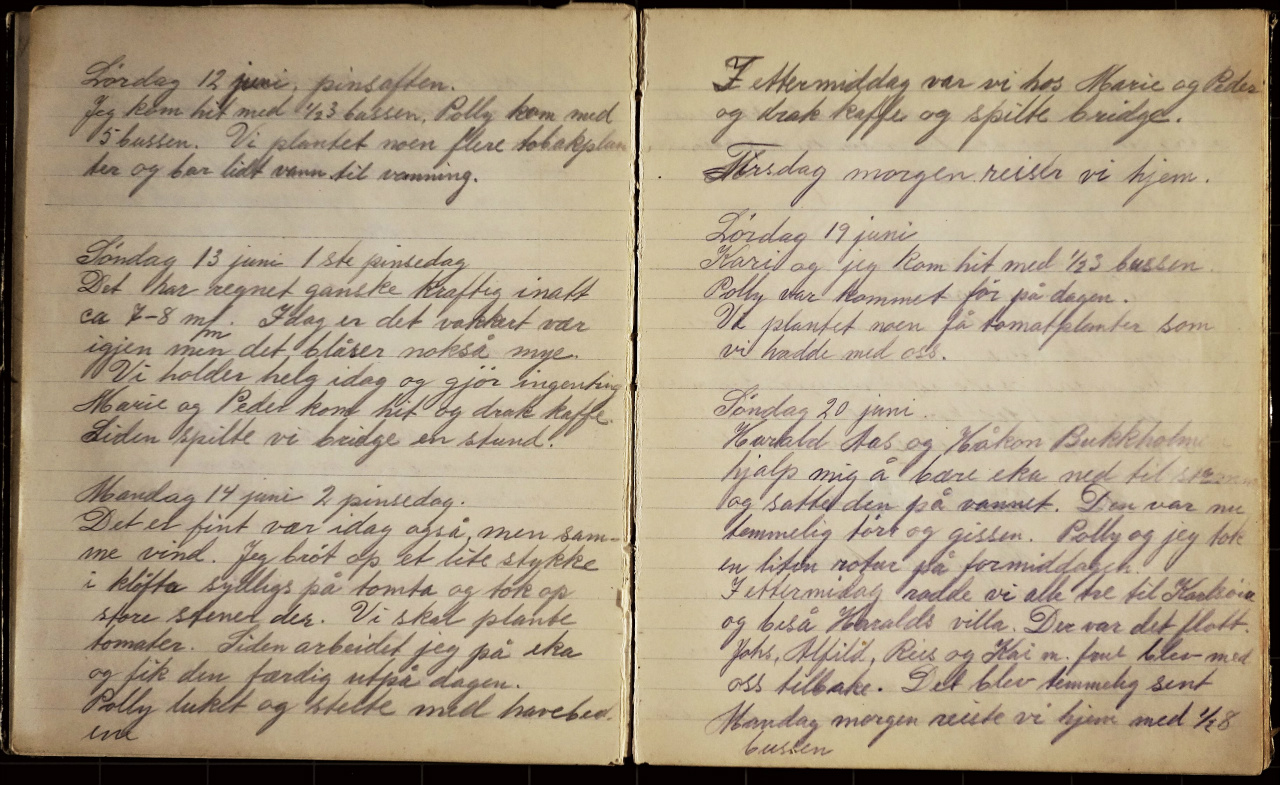 Lørdag 12 juni, pinsaften.
Jeg kom hit med ½3 bussen, Polly kom med
5 bussen. Vi plantet noen flere tobakplan
ter og bar lidt vann til vanning.
Søndag 13 juni 1ste pinsedag
Det har regnet ganske kraftig inatt
ca 7-8 m/m. Idag er det vakkert vær
igjen men det blåser nokså mye.
Vi holder helg idag og gjør ingenting
Marie og Peder kom hit og drak kaffe.
Siden spilte vi bridge en stund.
Mandag 14 juni 2 pinsedag.
Det er fint vær idag også, men sam-
me vind. Jeg brøt op et lite stykke
i kløfta sydligs på tomta og tok op
store stener der. Vi skal plante
tomater. Siden arbeidet jeg på eka
og fik den færdig utpå dagen.
Polly lukt og stelte med havebed-
ene
I ettermiddag var vi hos Marie og Peder
og drak kaffe og spilte bridge.
Tirsdag morgen reiser vi hjem.
Lørdag 19 juni
Kari og jeg kom hit med ½3 bussen.
Polly var kommet før på dagen.
Vi plantet noen få tomatplanter som
vi hadde med oss.
Søndag 20 juni.
Harald Aas og Håkon Bukkholmen
hjalp mig å bære eka ned til
og satte den på vannet. Den var nu
temmelig tørr og gissen. Polly og jeg tok
en liten rotur på formiddagen.
I ettermidag rodde vi alle tre til
og beså Haralds villa. Der var det flott.
Johs, Alfild, Reis og Kai m. frue blev med
oss tilbake. Det blev temmelig sent
Mandag morgen reiste vi hjem med ½8
bussen